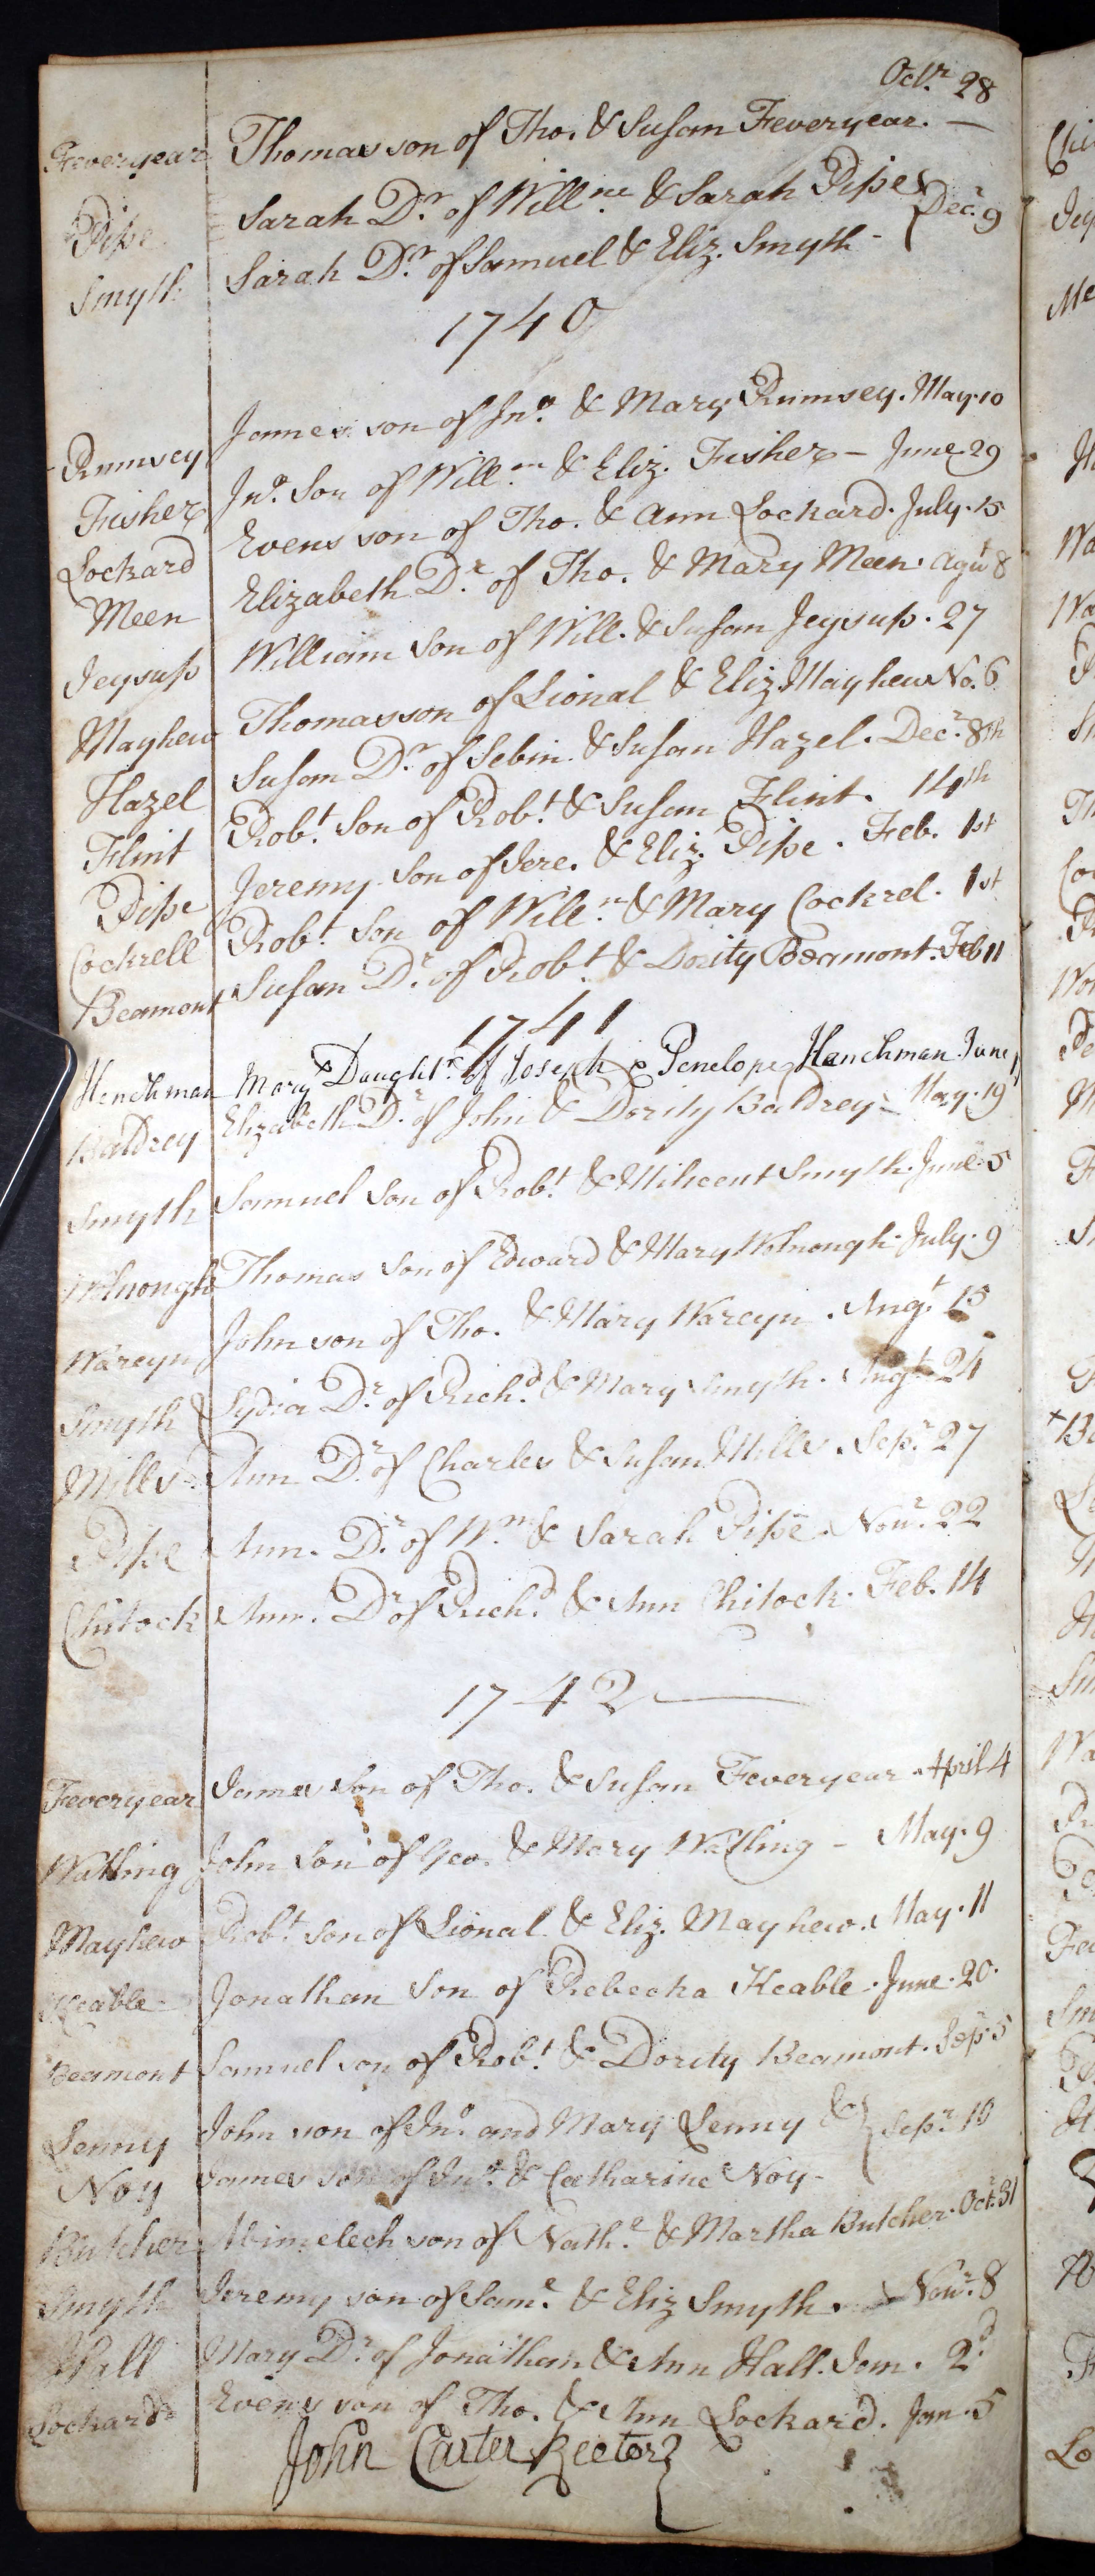 Octr. 28
Feveryear Thomas son of Tho. & Susan Feveryear. —
Pipe Sarah Dr. of Willm. & Sarah Pipe &
Decr. 9
Smyth Sarah Dr. of Samuel & Eliz. Smyth -
1740
Rumsey James son of Jno. & Mary Rumsey. May. 10
Fisher Jno. Son of Willm. & Eliz. Fisher - June 29
Lockard Evens son of Tho. & Ann Lockard. July. 15
Meen Elizabeth Dr. of Tho. & Mary Meen. Agust 8
Jeysup William Son of Will. & Susan Jeysup. 27
Mayhew Thomas son of Lional & Eliz. Mayhew No. 6
Hazel Susan Dr. of Sebin. & Susan Hazel. Decr. 8th
Flint Robt. Son of Robt. & Susan Flint. 14th
Pipe Jeremy Son of Jere. & Eliz. Pipe. Feb. 1st
Cockrell Robt. Son of Willm. & Mary Cockrel. 1st
Beamont Susan Dr. of Robt. & Dority Beamont. Feb 11
1741
Henchman Mary Daughtr. of Joseph & Penelope Henchman June
Baldrey Elizabeth Dr. of John & Dority Baldrey - May. 19
Smyth Samuel Son of Robt. & Milicent Smyth. June. 5
Wolnough Thomas Son of Edward & Mary Wolnough. July. 9
Wareyn John son of Tho. & Mary Wareyn. Augt. 15
Smyth Lydia Dr. of Richd. & Mary Smyth. Augt. 24
Mills Ann Dr. of Charles & Susan Mills. Sepr. 27
Pipe Ann. Dr. of Wm. & Sarah Pipe. Novr. 22
Chitock Ann. Dr. of Richd. & Ann Chitock. Feb. 14
1742
Feveryear James Son of Tho. & Susan Feveryear. April 4
Watling John Son of Geo. & Mary Watling - May. 9
Mayhew Robt. Son of Lional & Eliz. Mayhew. May. 11
Keable Jonathan Son of Rebecka Keable. June. 20.
Beamont Samuel son of Robt. & Dority Beamont. Sepr. 5
Lenny John son of Jno. and Mary Lenny &
Sepr. 10
Noy James son of Jno. & Catharine Noy -
Butcher Abimelech son of Nathl. & Martha Butcher. Octr. 31
Smyth Jeremy son of Saml. & Eliz Smyth. Novr. 8
Hall Mary Dr. of Jonathan & Ann Hall. Jan. 2d
Lockard Evens son of Tho. & Ann Lockard. Jan. 5
John Carter Rector